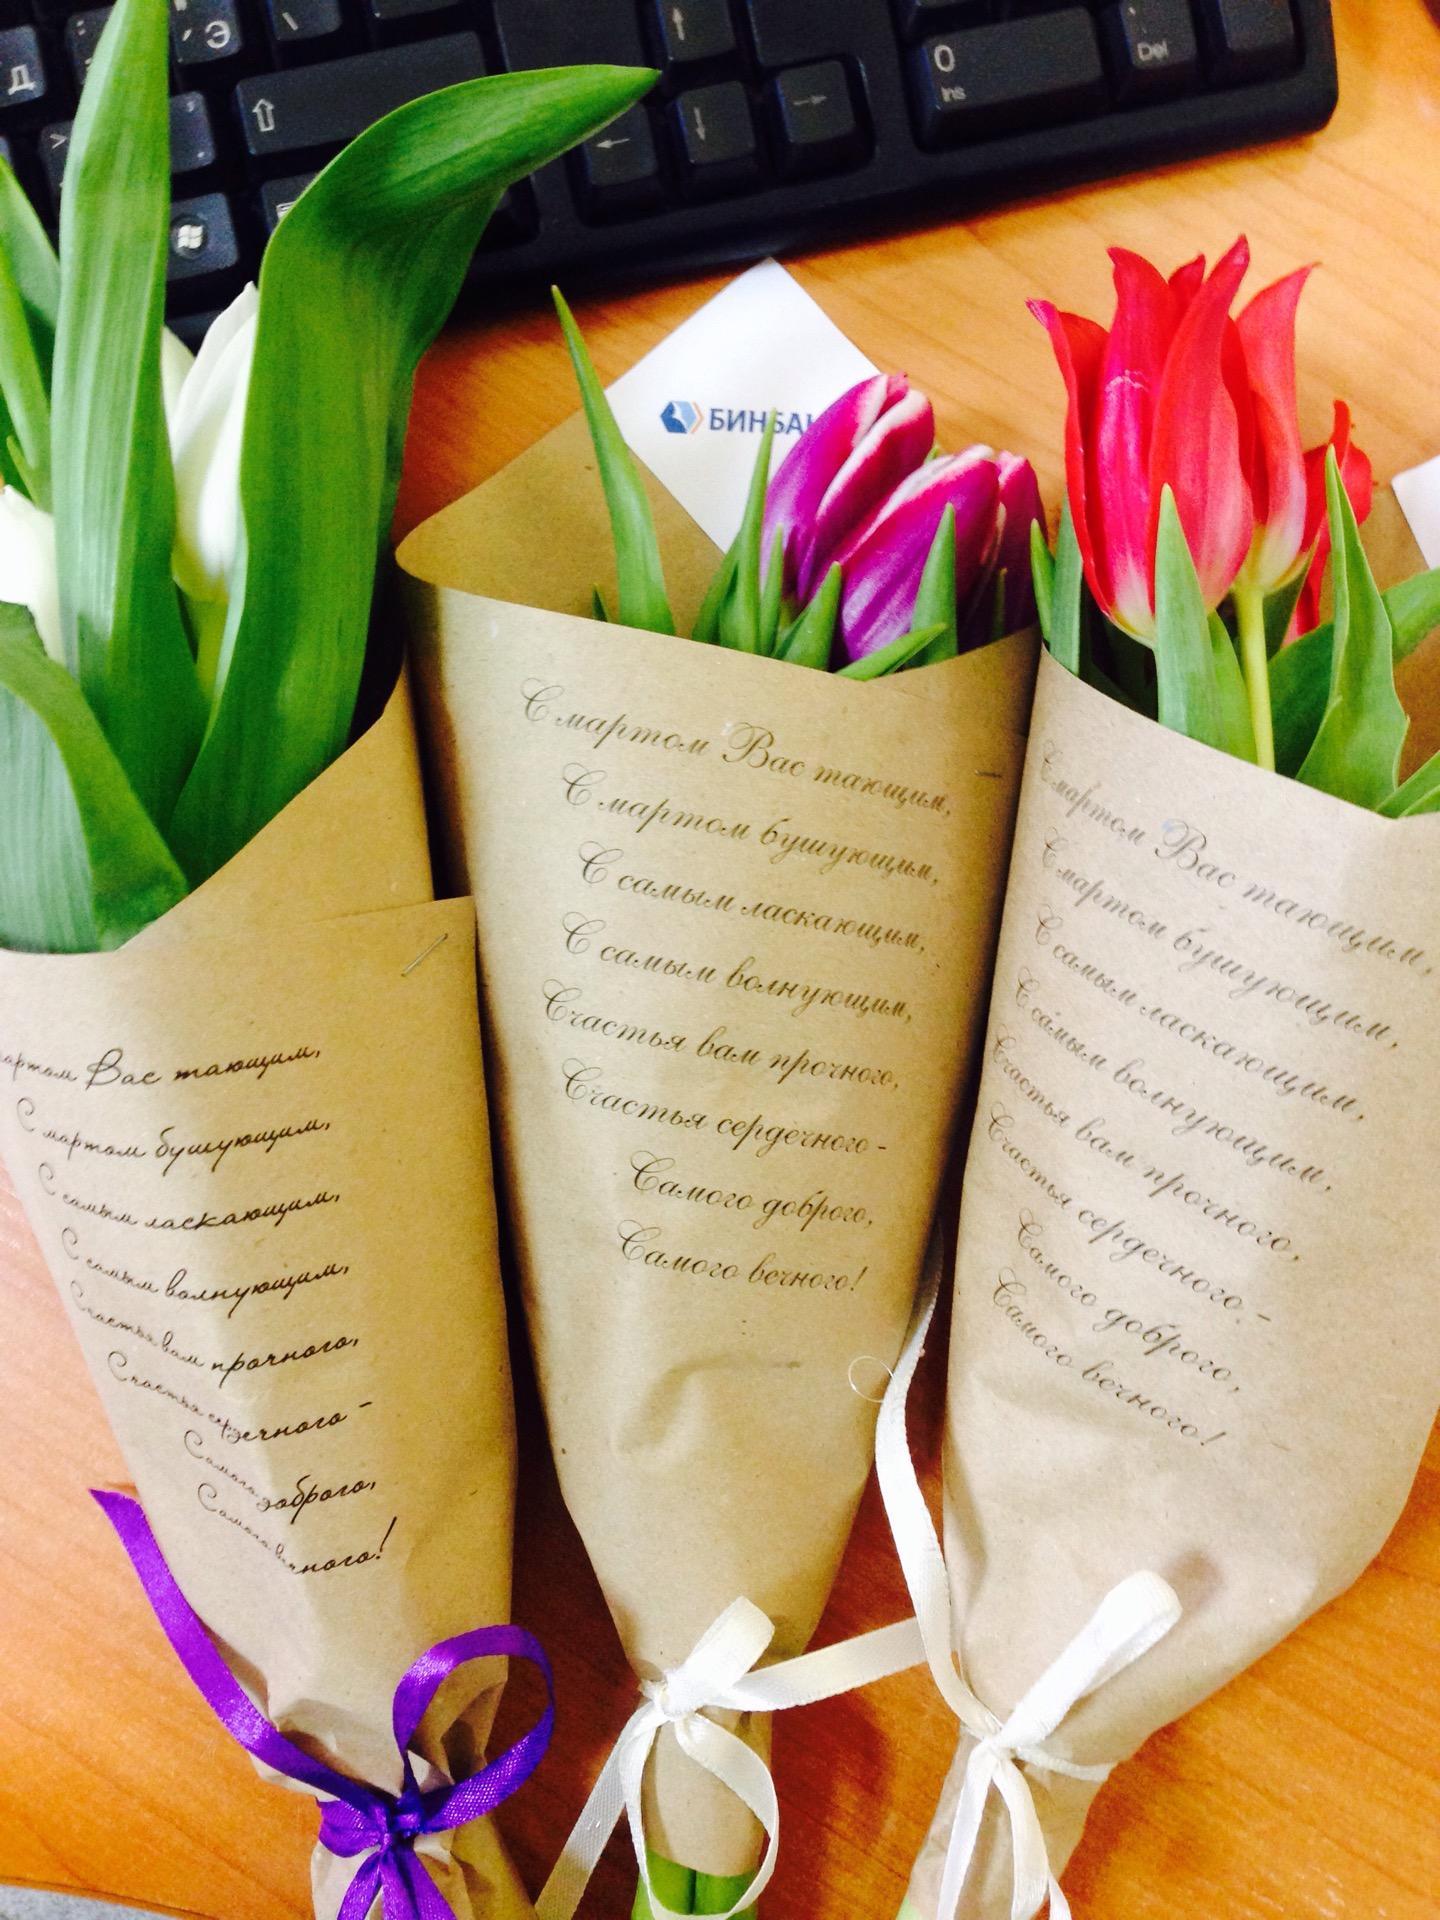 Д
Э
\
Ins
0
Del
БИНБА
Вас тающим,
С мартом бушующим,
С самым ласкающим,
С самым волнующим,
Счастья вам прочного,
Счастья сердечного -
Самого доброго,
Самого вечного!
С мартом Вас тающим,
С мартом бушующим,
С самым ласкающим,
С самым волнующим,
Счастья вам прочного,
Счастья сердечного -
Самого доброго,
Самого вечного!
С мартом Вас тающим,
С мартом бушующим,
С самым ласкающим,
С самым волнующим,
Счастья вам прочного,
Счастья сердечного -
Самого доброго,
Самого вечного!